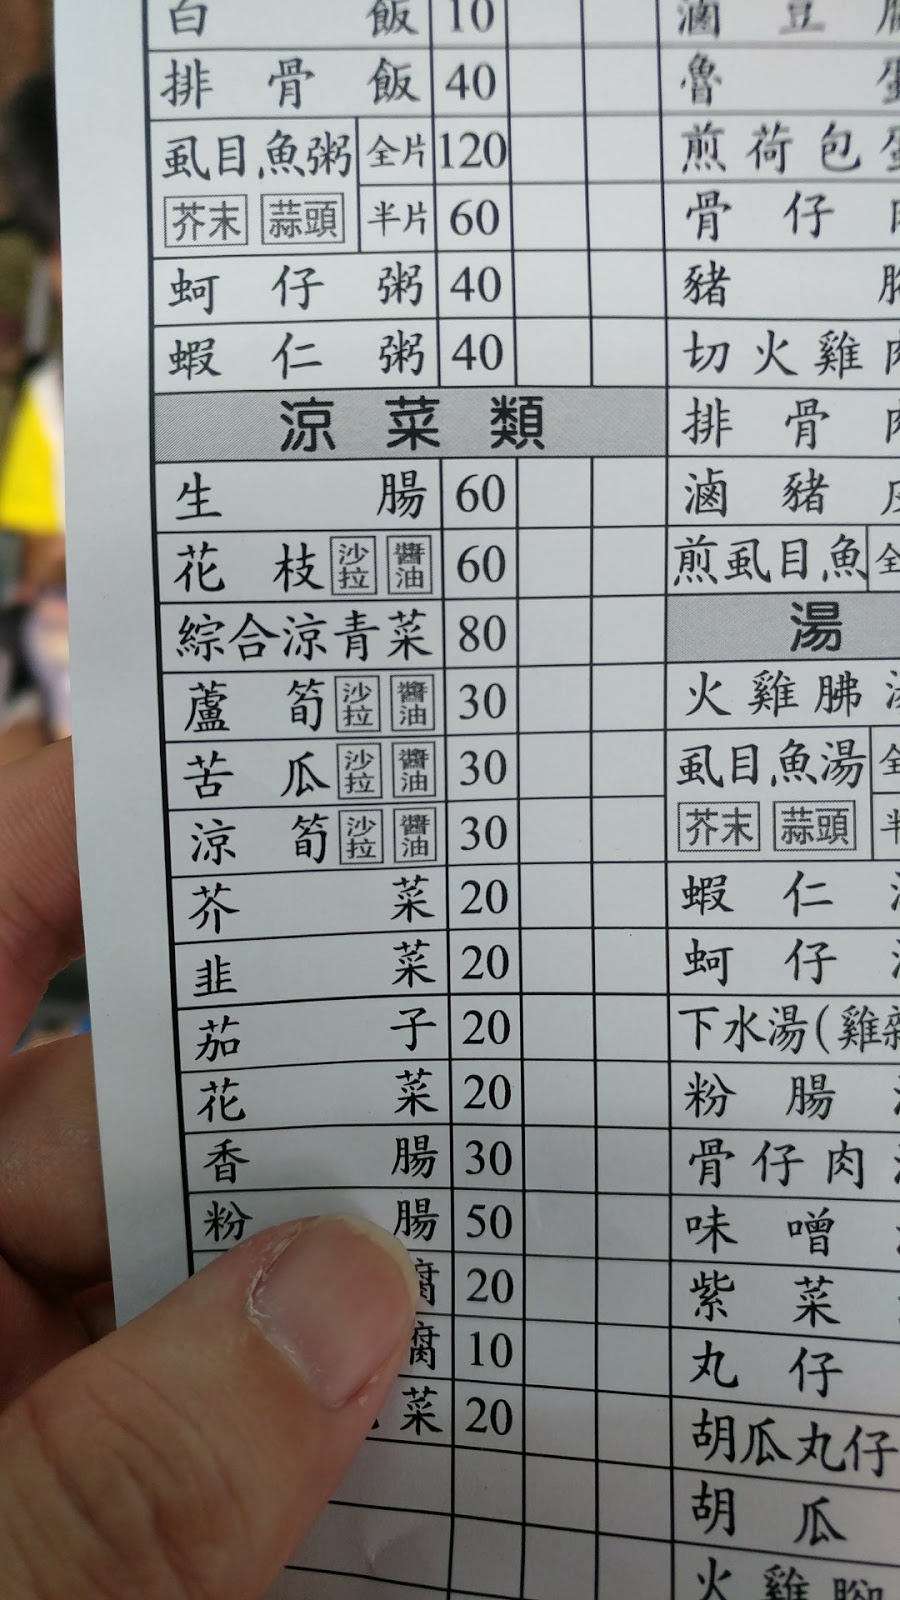 白飯 10
排骨飯 40
虱目魚粥 全片 120
芥末 蒜頭 半片 60
蚵仔粥 40
蝦仁粥 40
涼菜類
生腸 60
花枝 沙拉 醬油 60
綜合涼青菜 80
蘆筍 沙拉 醬油 30
苦瓜 沙拉 醬油 30
涼筍 沙拉 醬油 30
芥菜 20
韭菜 20
茄子 20
花菜 20
香腸 30
粉腸 50
腐 20
腐 10
菜 20
滷豆
魯
煎荷包
骨仔
豬
切火雞
排骨
滷豬
煎虱目魚 全
湯
火雞胇
虱目魚湯 全
芥末 蒜頭 半
蝦仁
蚵仔
下水湯(雞
粉腸
骨仔肉
味噌
紫菜
丸仔
胡瓜丸仔
胡瓜
火雞腳